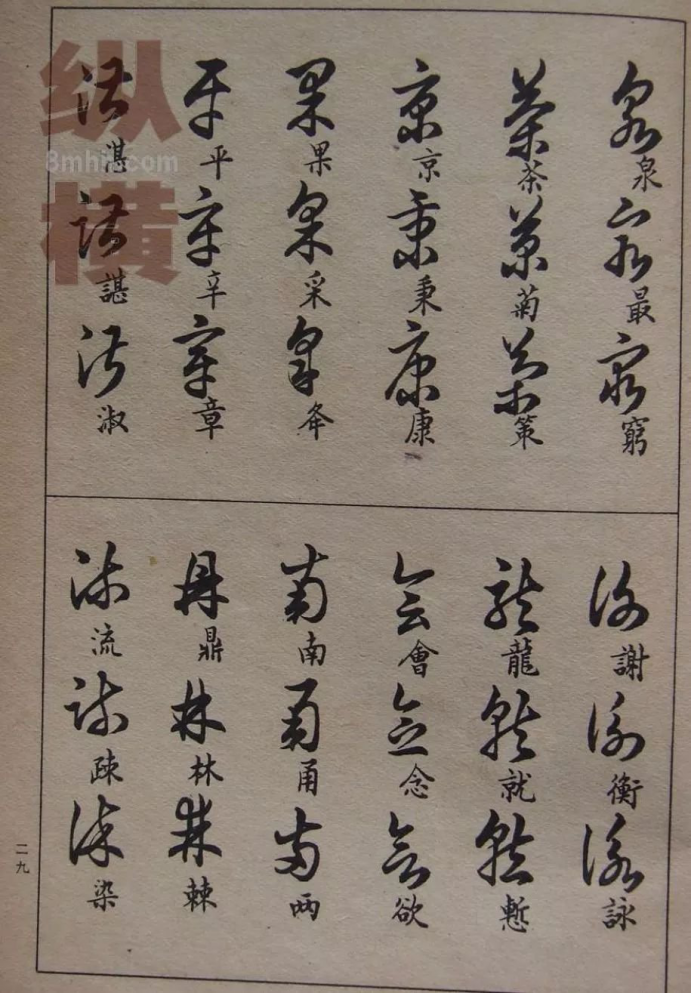 泉 最 窮
茶 菊 策
京 秉 康
果 采 夅
平 辛 章
湛 諶 淑
謝 衡 詠
龍 就 慙
會 念 欲
南 甬 兩
鼎 林 棘
流 疎 染
二九
纵横